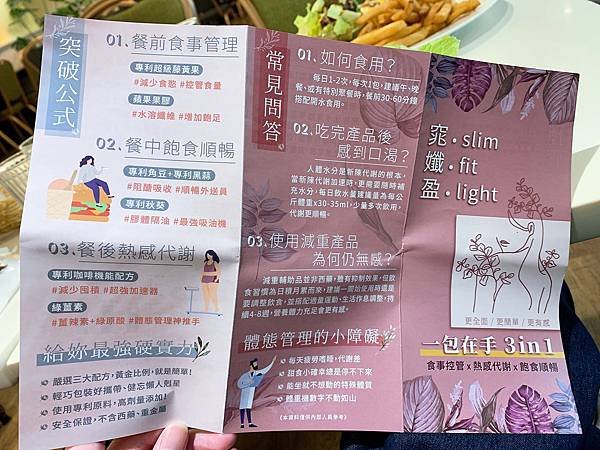 突破公式
01. 餐前食事管理
專利超級藤黃果
#減少食慾 #控管食量
蘋果果膠
#水溶纖維 #增加飽足
02. 餐中飽食順暢
專利角豆+專利黑蒜
#阻醣吸收 #順暢外送員
專利秋葵
#膠體隔油 #最強吸油機
03. 餐後熱感代謝
專利咖啡機能配方
#減少囤積 #超強加速器
綠薑素
#薑辣素+綠原酸 #體態管理神推手
給妳最強硬實力
嚴選三大配方,黃金比例,就是簡單!
輕巧包裝好攜帶、健忘懶人剋星
使用專利原料,高劑量添加!
安全保證,不含西藥、重金屬
常見問答
01. 如何食用?
每日1-2次,每次1包,建議午、晚
餐、或有特別聚餐時,餐前30-60分鐘
搭配開水食用。
02. 吃完產品後
感到口渴?
人體水分是新陳代謝的根本,
當新陳代謝加速時,更需要隨時補
充水分,每日飲水量建議量為每公
斤體重x30-35ml,少量多次飲用,
代謝更順暢。
03. 使用減重產品
為何仍無感?
減重輔助品並非西藥,雖有抑制效果,但飲
食習慣為日積月累而來,建議一開始使用時還是
要調整飲食,並搭配適量運動、生活作息調整,持
續4-8週,營養體力充足會更有感。
體態管理的小障礙
每天疲勞嗜睡,代謝差
甜食小確幸總是停不下來
能坐就不想動的特殊體質
體重機數字不動如山
《本資料僅供內部人員參考》
窕・slim
孅・fit
盈・light
更全面 / 更簡單 / 更有感
一包在手 3in1
食事控管 x 熱感代謝 x 飽食順暢